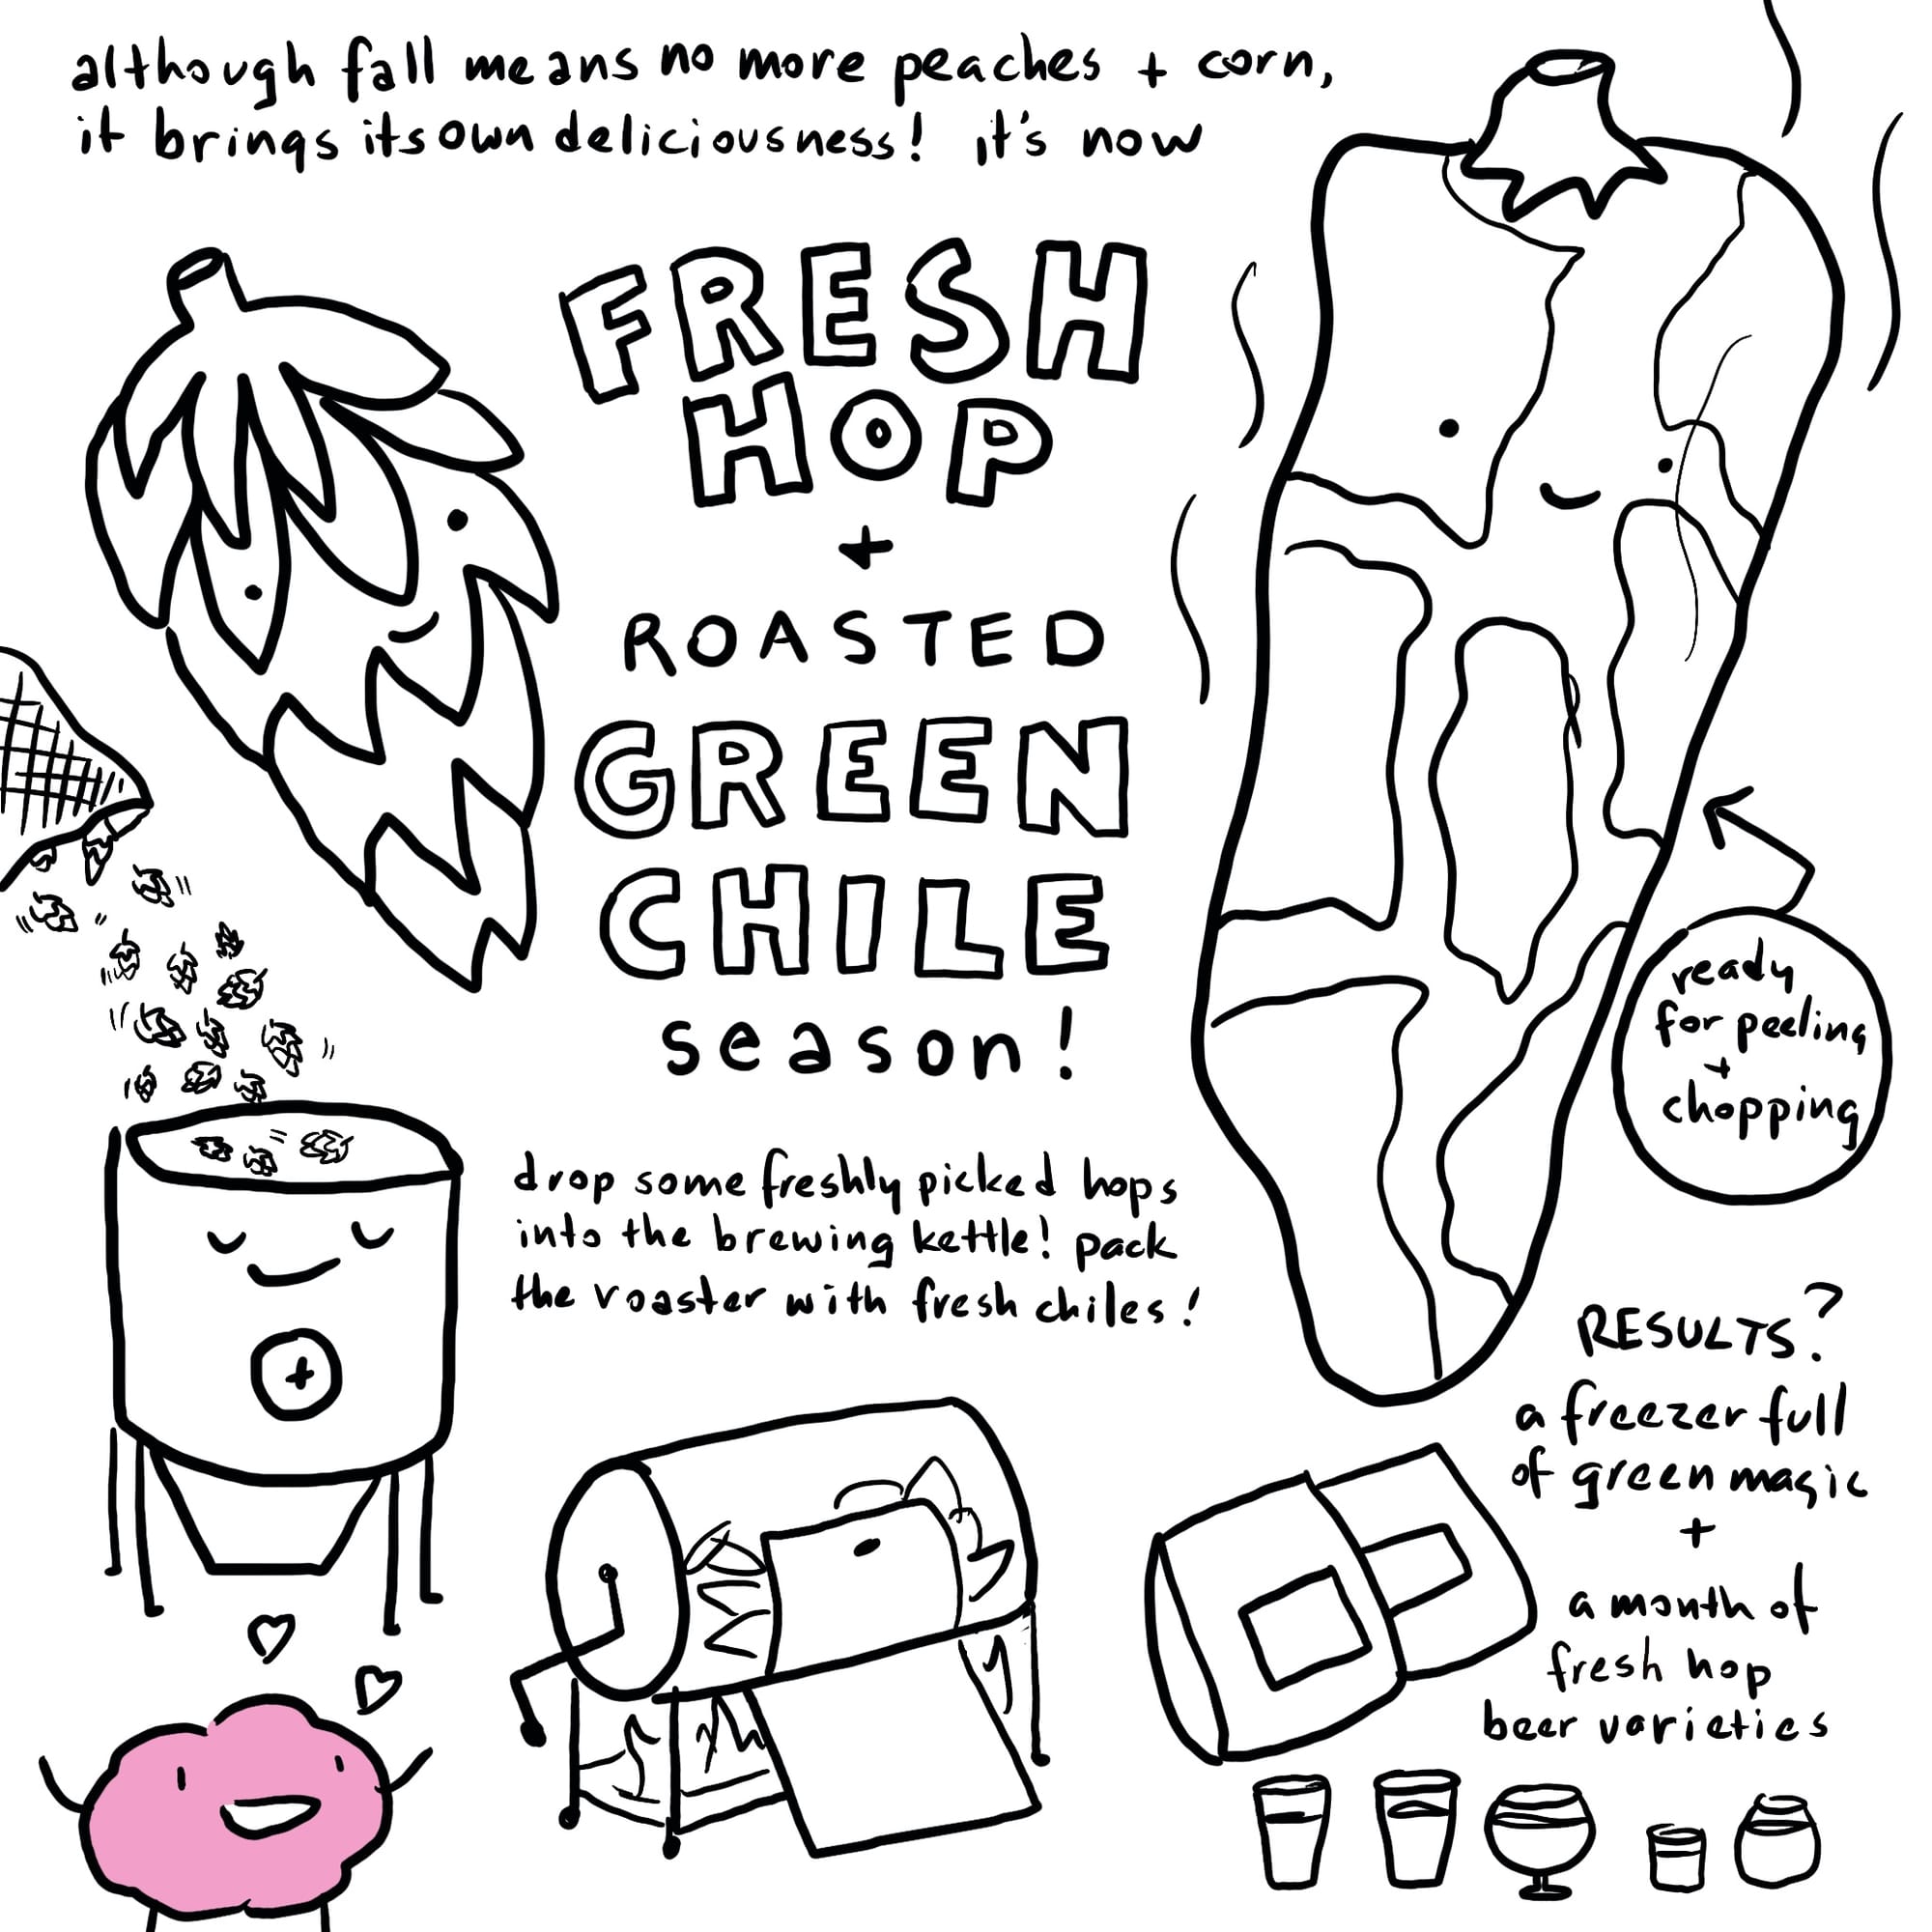 although fall means no more peaches + corn,
it brings its own deliciousness! it's now
FRESH
HOP
+
ROASTED
GREEN
CHILE
season!
ready
for peeling
+
chopping
drop some freshly picked hops
into the brewing kettle! pack
the roaster with fresh chiles!
RESULTS?
a freezer full
of green magic
+
a month of
fresh hop
beer varieties